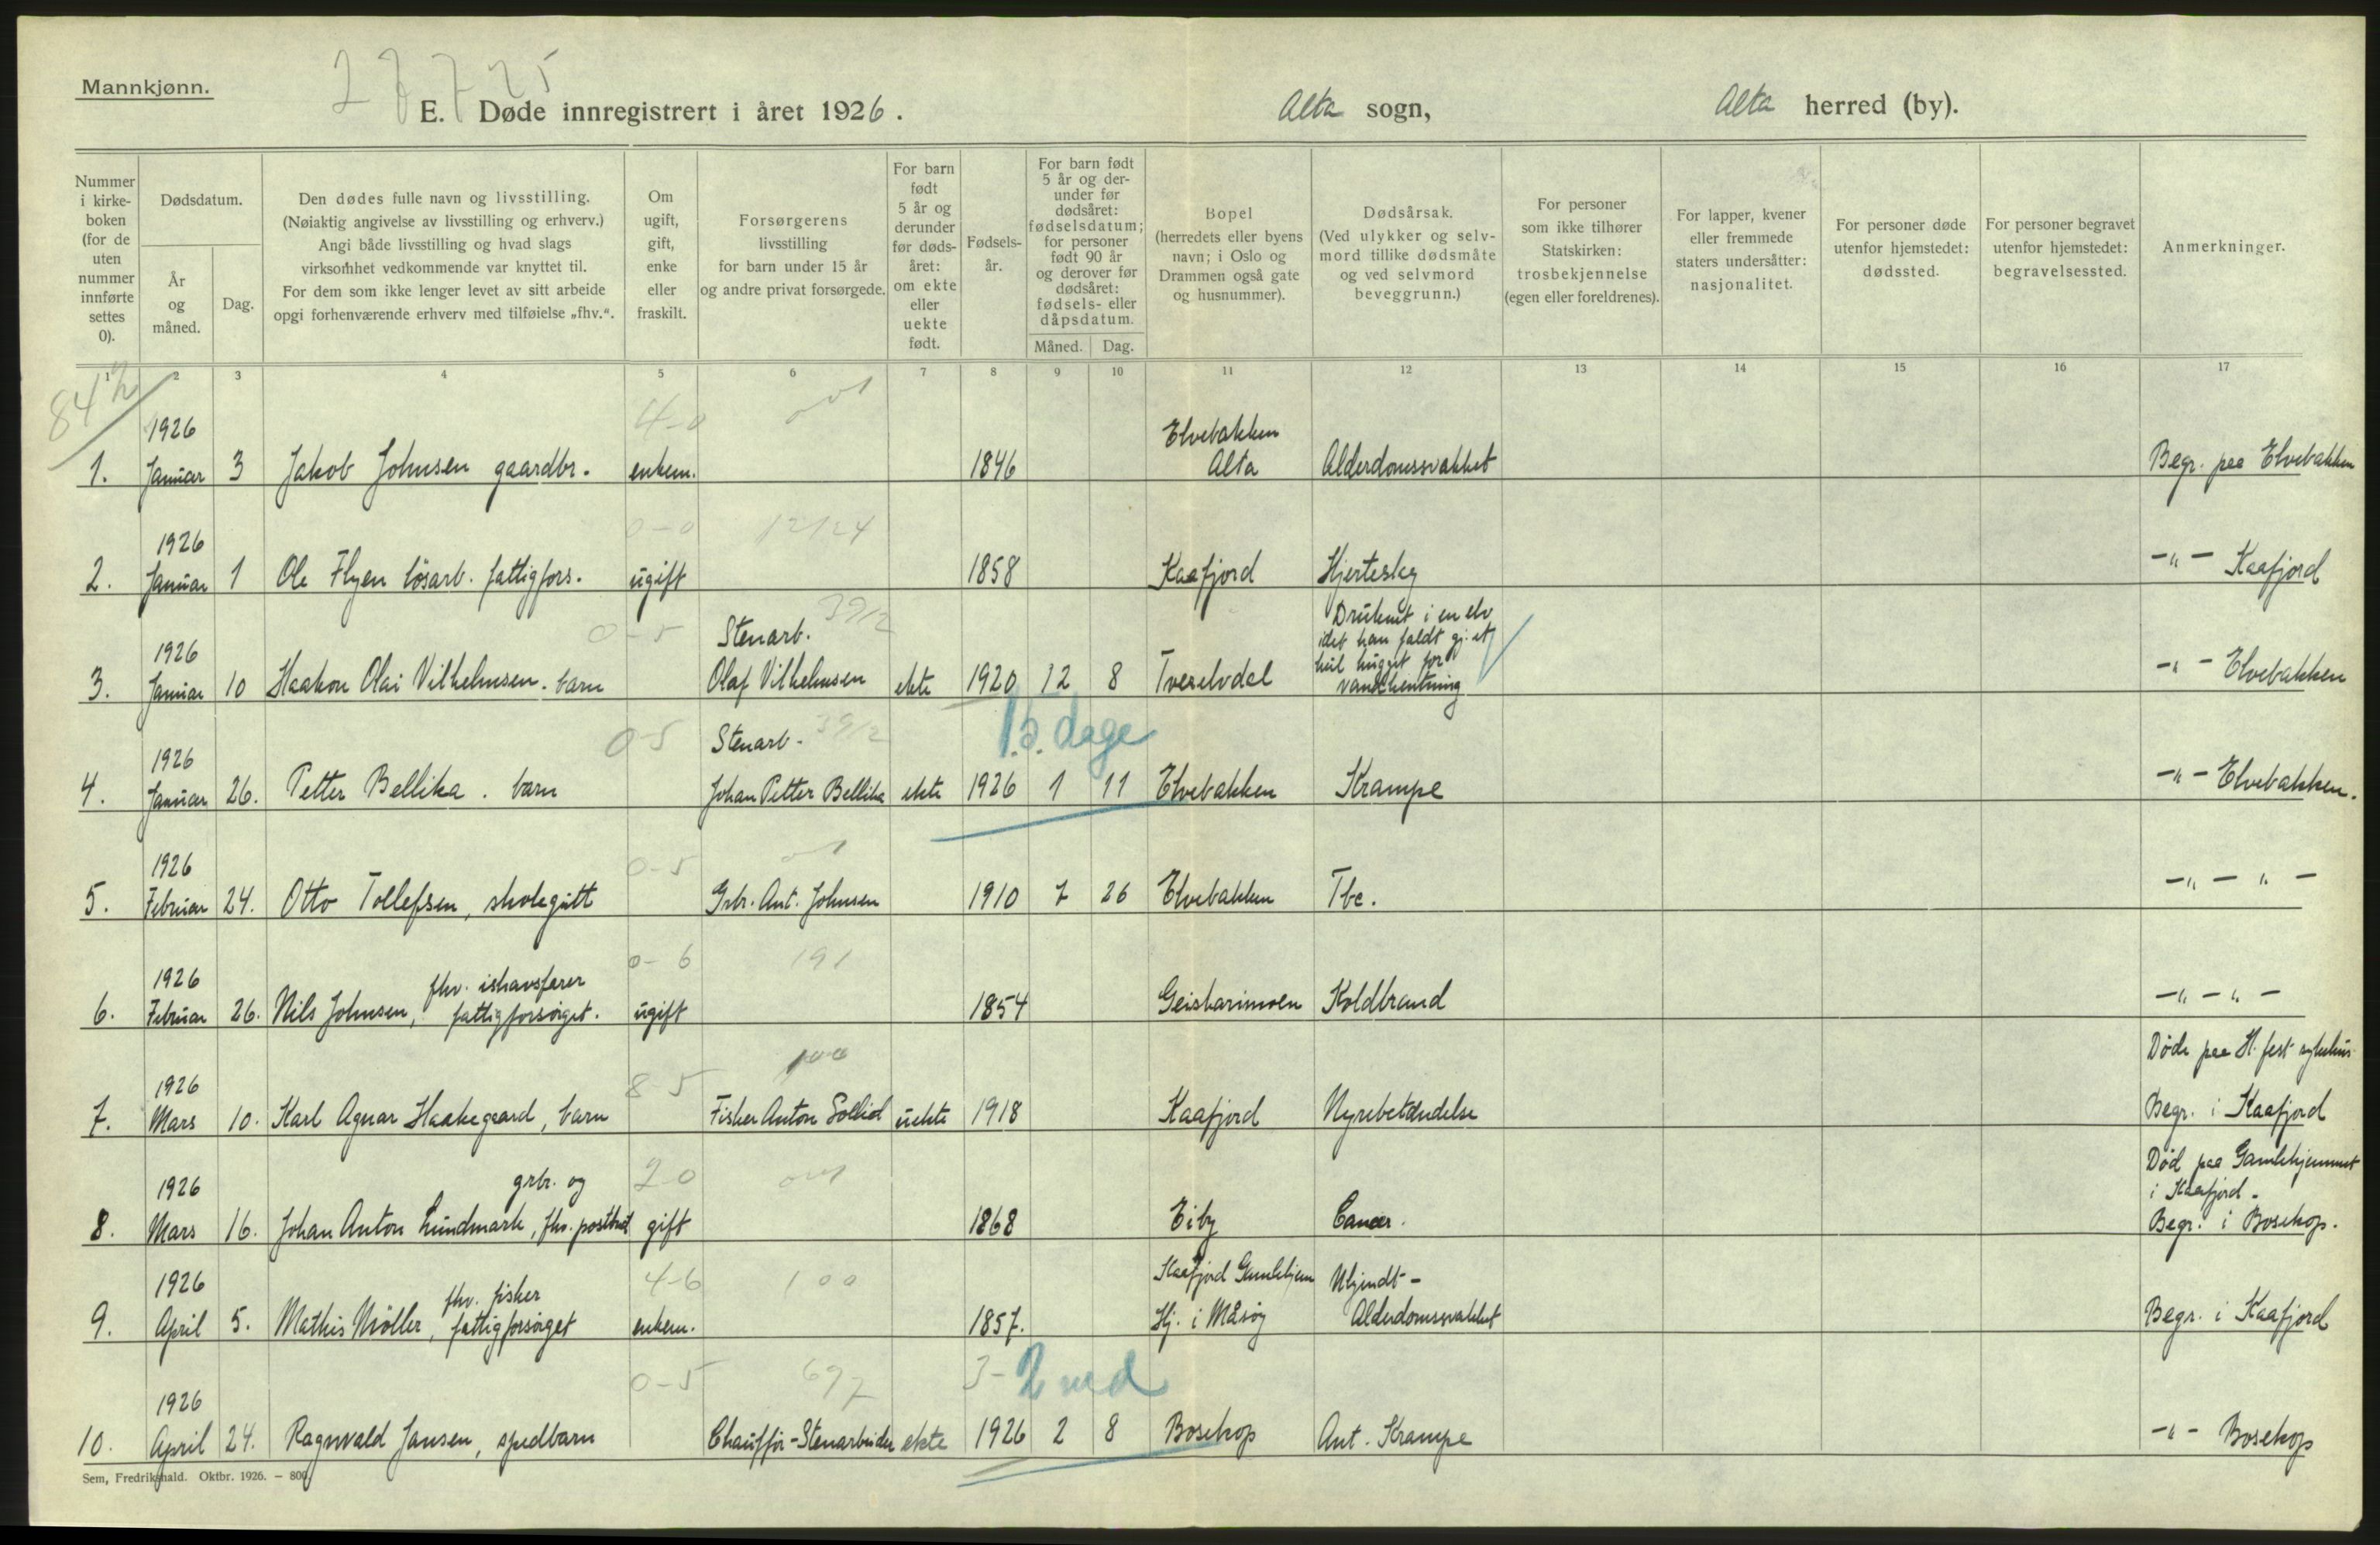 Mannkjønn.
27725
E. Døde innregistrert i året 1926.
Alta sogn,
Alta herred (by).
Nummer i kirkeboken (for de uten nummer innførte settes 0).
Dødsdatum.
År og måned.
Dag.
Den dødes fulle navn og livsstilling.
(Nøiaktig angivelse av livsstilling og erhverv.)
Angi både livsstilling og hvad slags
virksomhet vedkommende var knyttet til.
For dem som ikke lenger levet av sitt arbeide
opgi forhenværende erhverv med tilføielse „fhv.“.
Om ugift, gift, enke eller fraskilt.
Forsørgerens
livsstilling
for barn under 15 år
og andre privat forsørgede.
For barn født 5 år og derunder før dødsåret: om ekte eller uekte født.
Fødselsår.
For barn født 5 år og derunder før dødsåret: fødselsdatum; for personer født 90 år og derover før dødsåret: fødsels- eller dåpsdatum.
Måned. Dag.
Bopel
(herredets eller byens
navn; i Oslo og
Drammen også gate
og husnummer).
Dødsårsak.
(Ved ulykker og selvmord tillike dødsmåte
og ved selvmord
beveggrunn.)
For personer
som ikke tilhører
Statskirken:
trosbekjennelse
(egen eller foreldrenes).
For lapper, kvener
eller fremmede
staters undersåtter:
nasjonalitet.
For personer døde
utenfor hjemstedet:
dødssted.
For personer begravet
utenfor hjemstedet:
begravelsessted.
Anmerkninger.
1 2 3 4 5 6 7 8 9 10 11 12 13 14 15 16 17
4-0
1926 Elvebakken
1. Januar 3 Jakob Johnsen gaardbr. enkem. 1846 Alta Alderdomssvakhet Begr. paa Elvebakken
0-0 12124
1926
2. Januar 1 Ole Flyen løsarb. fattigfors. ugift 1858 Kaafjord Hjerteslag -"- Kaafjord
0-5 39/2
1926 Stenarb. Druknet i en elv
idet han faldt gj. et
hul hugget for
3. Januar 10 Haakon Olai Vilhelmsen. barn Olaf Vilhelmsen ekte 1920 12 8 Tverelvdal vandhentning -"- Elvebakken
0-5 39/2 15. dage
1926 Stenarb.
4. Januar 26. Petter Bellika. barn Johan Petter Bellika ekte 1926 1 11 Elvebakken Krampe -"- Elvebakken.
0-5
1926
5. Februar 24. Otto Tollefsen, skolegutt Grbr. Ant. Johnsen 1910 7 26 Elvebakken Tbc. -"- "-
0-6 191
1926 fhv. ishavsfarer
6. Februar 26. Nils Johnsen, fattigforsørget. ugift 1854 Geiskarimoen Koldbrand -"-"-
8 5 100 Døde paa H.fest sykehus
1926
7. Mars 10. Karl Agnar Haakegaard, barn Fisker Anton Sollid uekte 1918 Kaafjord Nyrebetændelse Begr. i Kaafjord
2-0 Død paa Gamlehjemmet
1926 grbr. og i Kaafjord.
8. Mars 16. Johan Anton Lundmark, fhv. postbud gift 1868 Eiby Cancer. Begr. i Bosekop.
4-6 100
1926 fhv. fisker Kaafjord Gamlehjem Ukjendt-
9. April 5. Mathis Møller, fattigforsørget enkem. 1857. Hj. i Måsøy Alderdomssvakhet Begr. i Kaafjord
0-5 697 3- 2 md
1926
10. April 24. Ragnvald Jansen, spedbarn Chauffør-Stenarbeider ekte 1926 2 8 Bosekop Ant. Krampe -"- Bosekop
Sem, Fredrikshald. Oktbr. 1926. — 800.